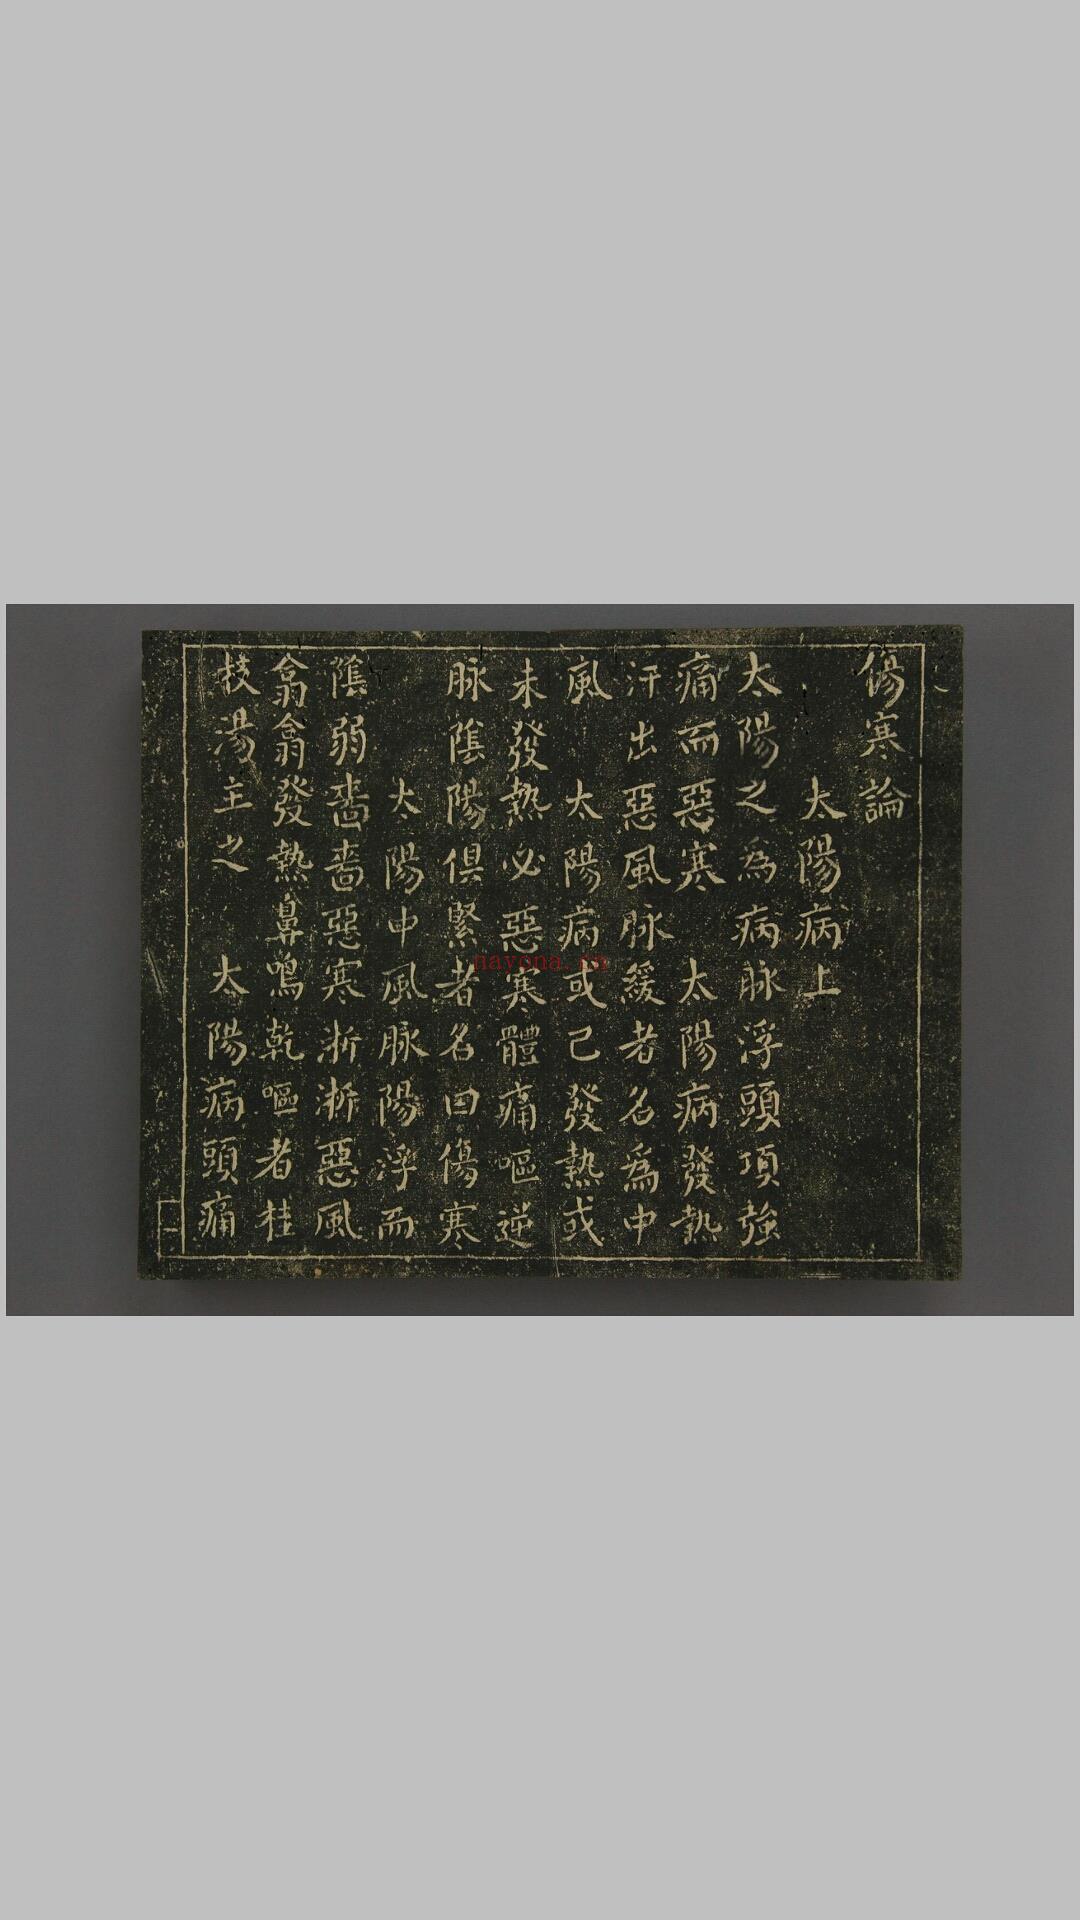 傷寒論
太陽病上
太陽之為病脉浮頭項強
痛而惡寒　太陽病發熱
汗出惡風脉緩者名為中
風　太陽病或已發熱或
未發熱必惡寒體痛嘔逆
脉陰陽俱緊者名曰傷寒
太陽中風脉陽浮而
陰弱嗇嗇惡寒淅淅惡風
翕翕發熱鼻鳴乾嘔者桂
枝湯主之　太陽病頭痛
一
nayona.cn